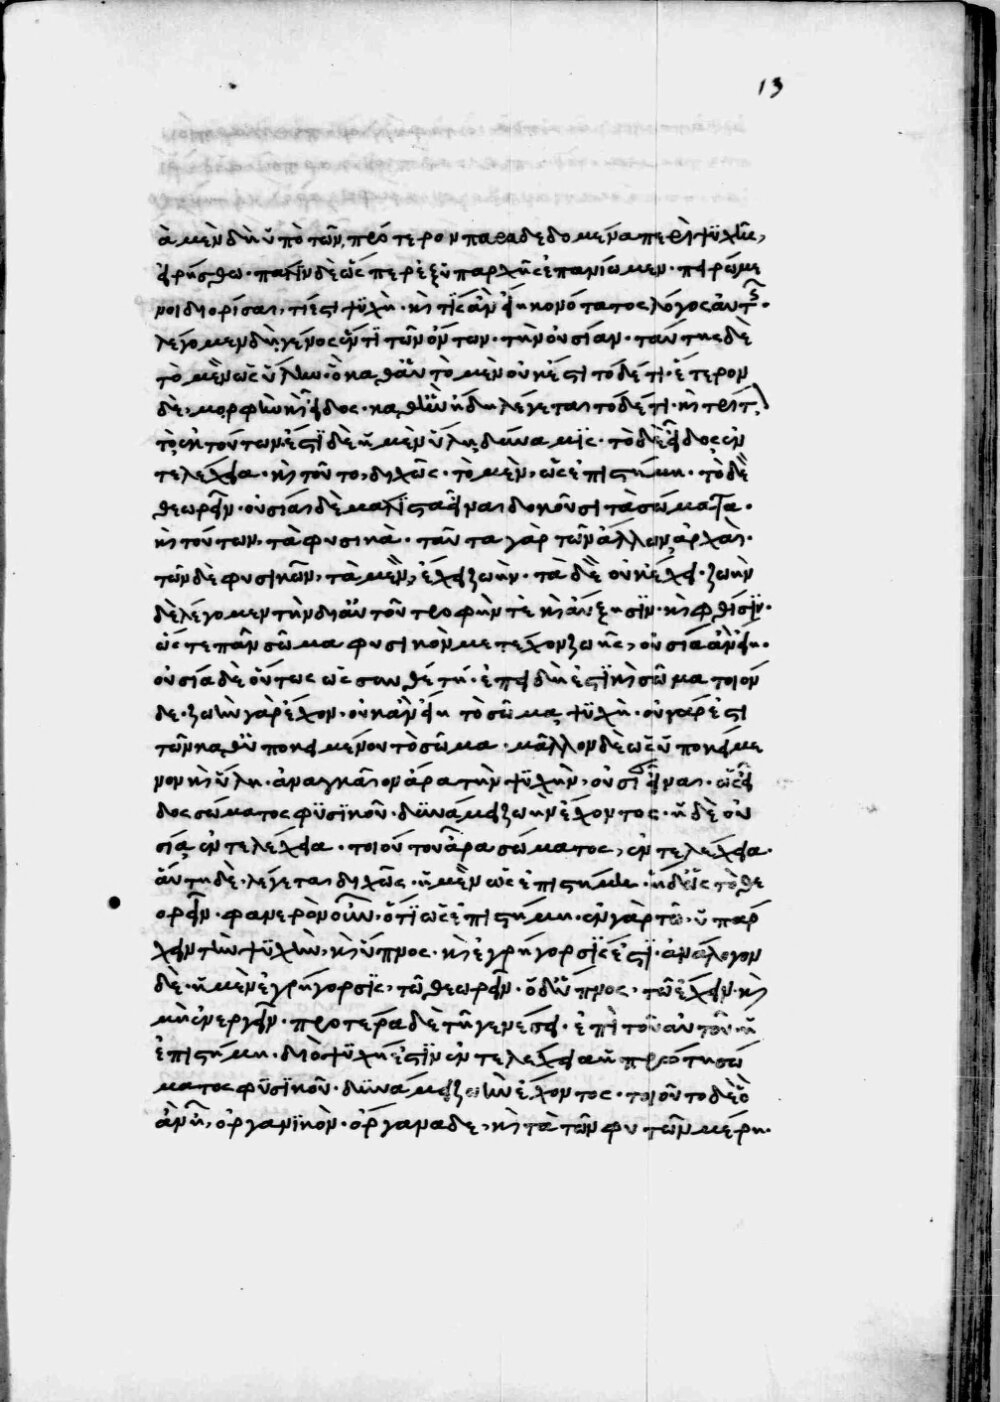 13
ὰ μὲν δὴ ὑπὸ τῶν πρότερον παραδεδομένα περὶ ψυχῆς,
εἰρήσθω· πάλιν δὲ ὥσπερ ἐξ ὑπαρχῆς ἐπανίωμεν· πειρώμε
νοι διορίσαι, τί ἐστι ψυχὴ· καὶ τίς ἂν εἴη κοινότατος λόγος αὐτῆς·
λέγομεν δὴ γένος ἕν τι τῶν ὄντων· τὴν οὐσίαν· ταύτης δὲ
τὸ μὲν ὡς ὕλην· ὃ καθ' αὑτὸ μὲν οὐκ ἔστι τόδε τι· ἕτερον
δὲ, μορφὴν καὶ εἶδος· καθ' ἣν ἤδη λέγεται τόδε τι· καὶ τρίτ
τὸ ἐκ τούτων· ἔστι δὲ ἡ μὲν ὕλη, δύναμις· τὸ δὲ εἶδος ἐν
τελέχεια· καὶ τοῦτο, διχῶς· τὸ μὲν, ὡς ἐπιστήμη· τὸ δὲ
θεωρεῖν· οὐσίαι δὲ μάλιστα εἶναι δοκοῦσι τὰ σώματα·
καὶ τούτων, τὰ φυσικὰ· ταῦτα γὰρ τῶν ἄλλων ἀρχὰι·
τῶν δὲ φυσικῶν, τὰ μὲν, ἔχει ζωὴν· τὰ δὲ οὐκ ἔχει· ζωὴν
δὲ λέγομεν τὴν δι' αὐτοῦ τροφὴν τὲ καὶ αὔξησιν· καὶ φθίσιν·
ὥστε πᾶν σῶμα φυσικὸν μετέχον ζωῆς, οὐσία ἂν εἴη·
οὐσία δὲ οὕτως ὡς συνθέτη· ἐπεὶ δὴ ἐστὶ καὶ σῶμα τοιόν
δε· ζωὴν γὰρ ἔχον· οὐκ ἂν εἴη τὸ σῶμα, ψυχὴ· οὐ γάρ ἐστι
τῶν καθ' ὑποκειμένου τὸ σῶμα· μᾶλλον δὲ ὡς ὑποκείμε
νον καὶ ὕλη· ἀναγκαῖον ἄρα τὴν ψυχὴν, οὐσίαν εἶναι· ὡς εἶ
δος σώματος φυσικοῦ· δυνάμει ζωὴν ἔχοντος· ἡ δὲ οὐ
σία, ἐντελέχεια· τοιούτου ἄρα σώματος, ἐντελέχεια·
αὕτη δὲ· λέγεται διχῶς· ἡ μὲν ὡς ἐπιστήμη· ἡ δ' ὡς τὸ θε
ορεῖν· φανερὸν οὖν· ὅτι ὡς ἐπιστήμη· ἐν γὰρ τῶ· ὑπάρ
χειν τὴν ψυχὴν, καὶ ὕπνος· καὶ ἐγρήγορσίς ἐστι· ἀνάλογον
δὲ· ἡ μὲν ἐγρήγορσις, τῶ θεωρεῖν· ὁ δ' ὕπνος, τῶ ἔχειν· καὶ
μὴ ἐνεργεῖν· προτέρα δὲ τῆ γενέσει· ἐπὶ τοῦ αὐτοῦ· ἡ
ἐπιστήμη· διὸ ψυχή ἐστιν ἐντελέχεια ἡ πρώτη σώ
ματος φυσικοῦ· δυνάμει ζωὴν ἔχοντος· τοιοῦτο δὲ ὃ
ἂν ἦ, ὀργανικὸν· ὄργανα δὲ, καὶ τὰ τῶν φυτῶν μέρη·